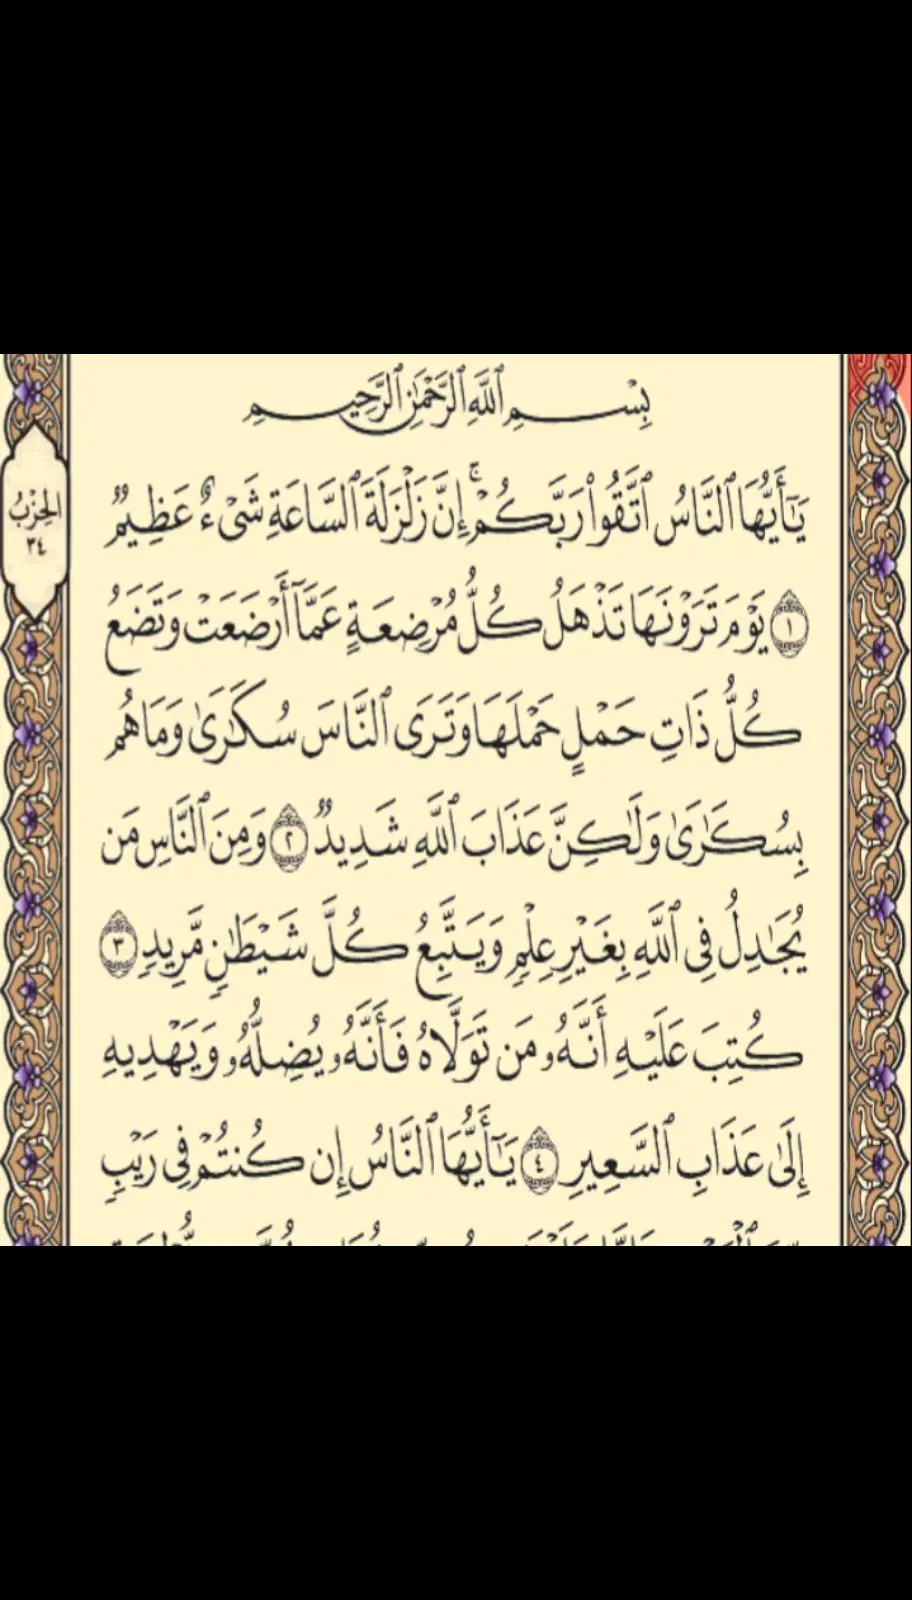 بِسْمِ ٱللَّهِ ٱلرَّحْمَٰنِ ٱلرَّحِيمِ
يَٰٓأَيُّهَا ٱلنَّاسُ ٱتَّقُوا۟ رَبَّكُمْ ۚ إِنَّ زَلْزَلَةَ ٱلسَّاعَةِ شَىْءٌ عَظِيمٌ
١ يَوْمَ تَرَوْنَهَا تَذْهَلُ كُلُّ مُرْضِعَةٍ عَمَّآ أَرْضَعَتْ وَتَضَعُ
كُلُّ ذَاتِ حَمْلٍ حَمْلَهَا وَتَرَى ٱلنَّاسَ سُكَٰرَىٰ وَمَا هُم
بِسُكَٰرَىٰ وَلَٰكِنَّ عَذَابَ ٱللَّهِ شَدِيدٌ ٢ وَمِنَ ٱلنَّاسِ مَن
يُجَٰدِلُ فِى ٱللَّهِ بِغَيْرِ عِلْمٍ وَيَتَّبِعُ كُلَّ شَيْطَٰنٍ مَّرِيدٍ ٣
كُتِبَ عَلَيْهِ أَنَّهُۥ مَن تَوَلَّاهُ فَأَنَّهُۥ يُضِلُّهُۥ وَيَهْدِيهِ
إِلَىٰ عَذَابِ ٱلسَّعِيرِ ٤ يَٰٓأَيُّهَا ٱلنَّاسُ إِن كُنتُمْ فِى رَيْبٍ
الحِزْبُ
٣٤